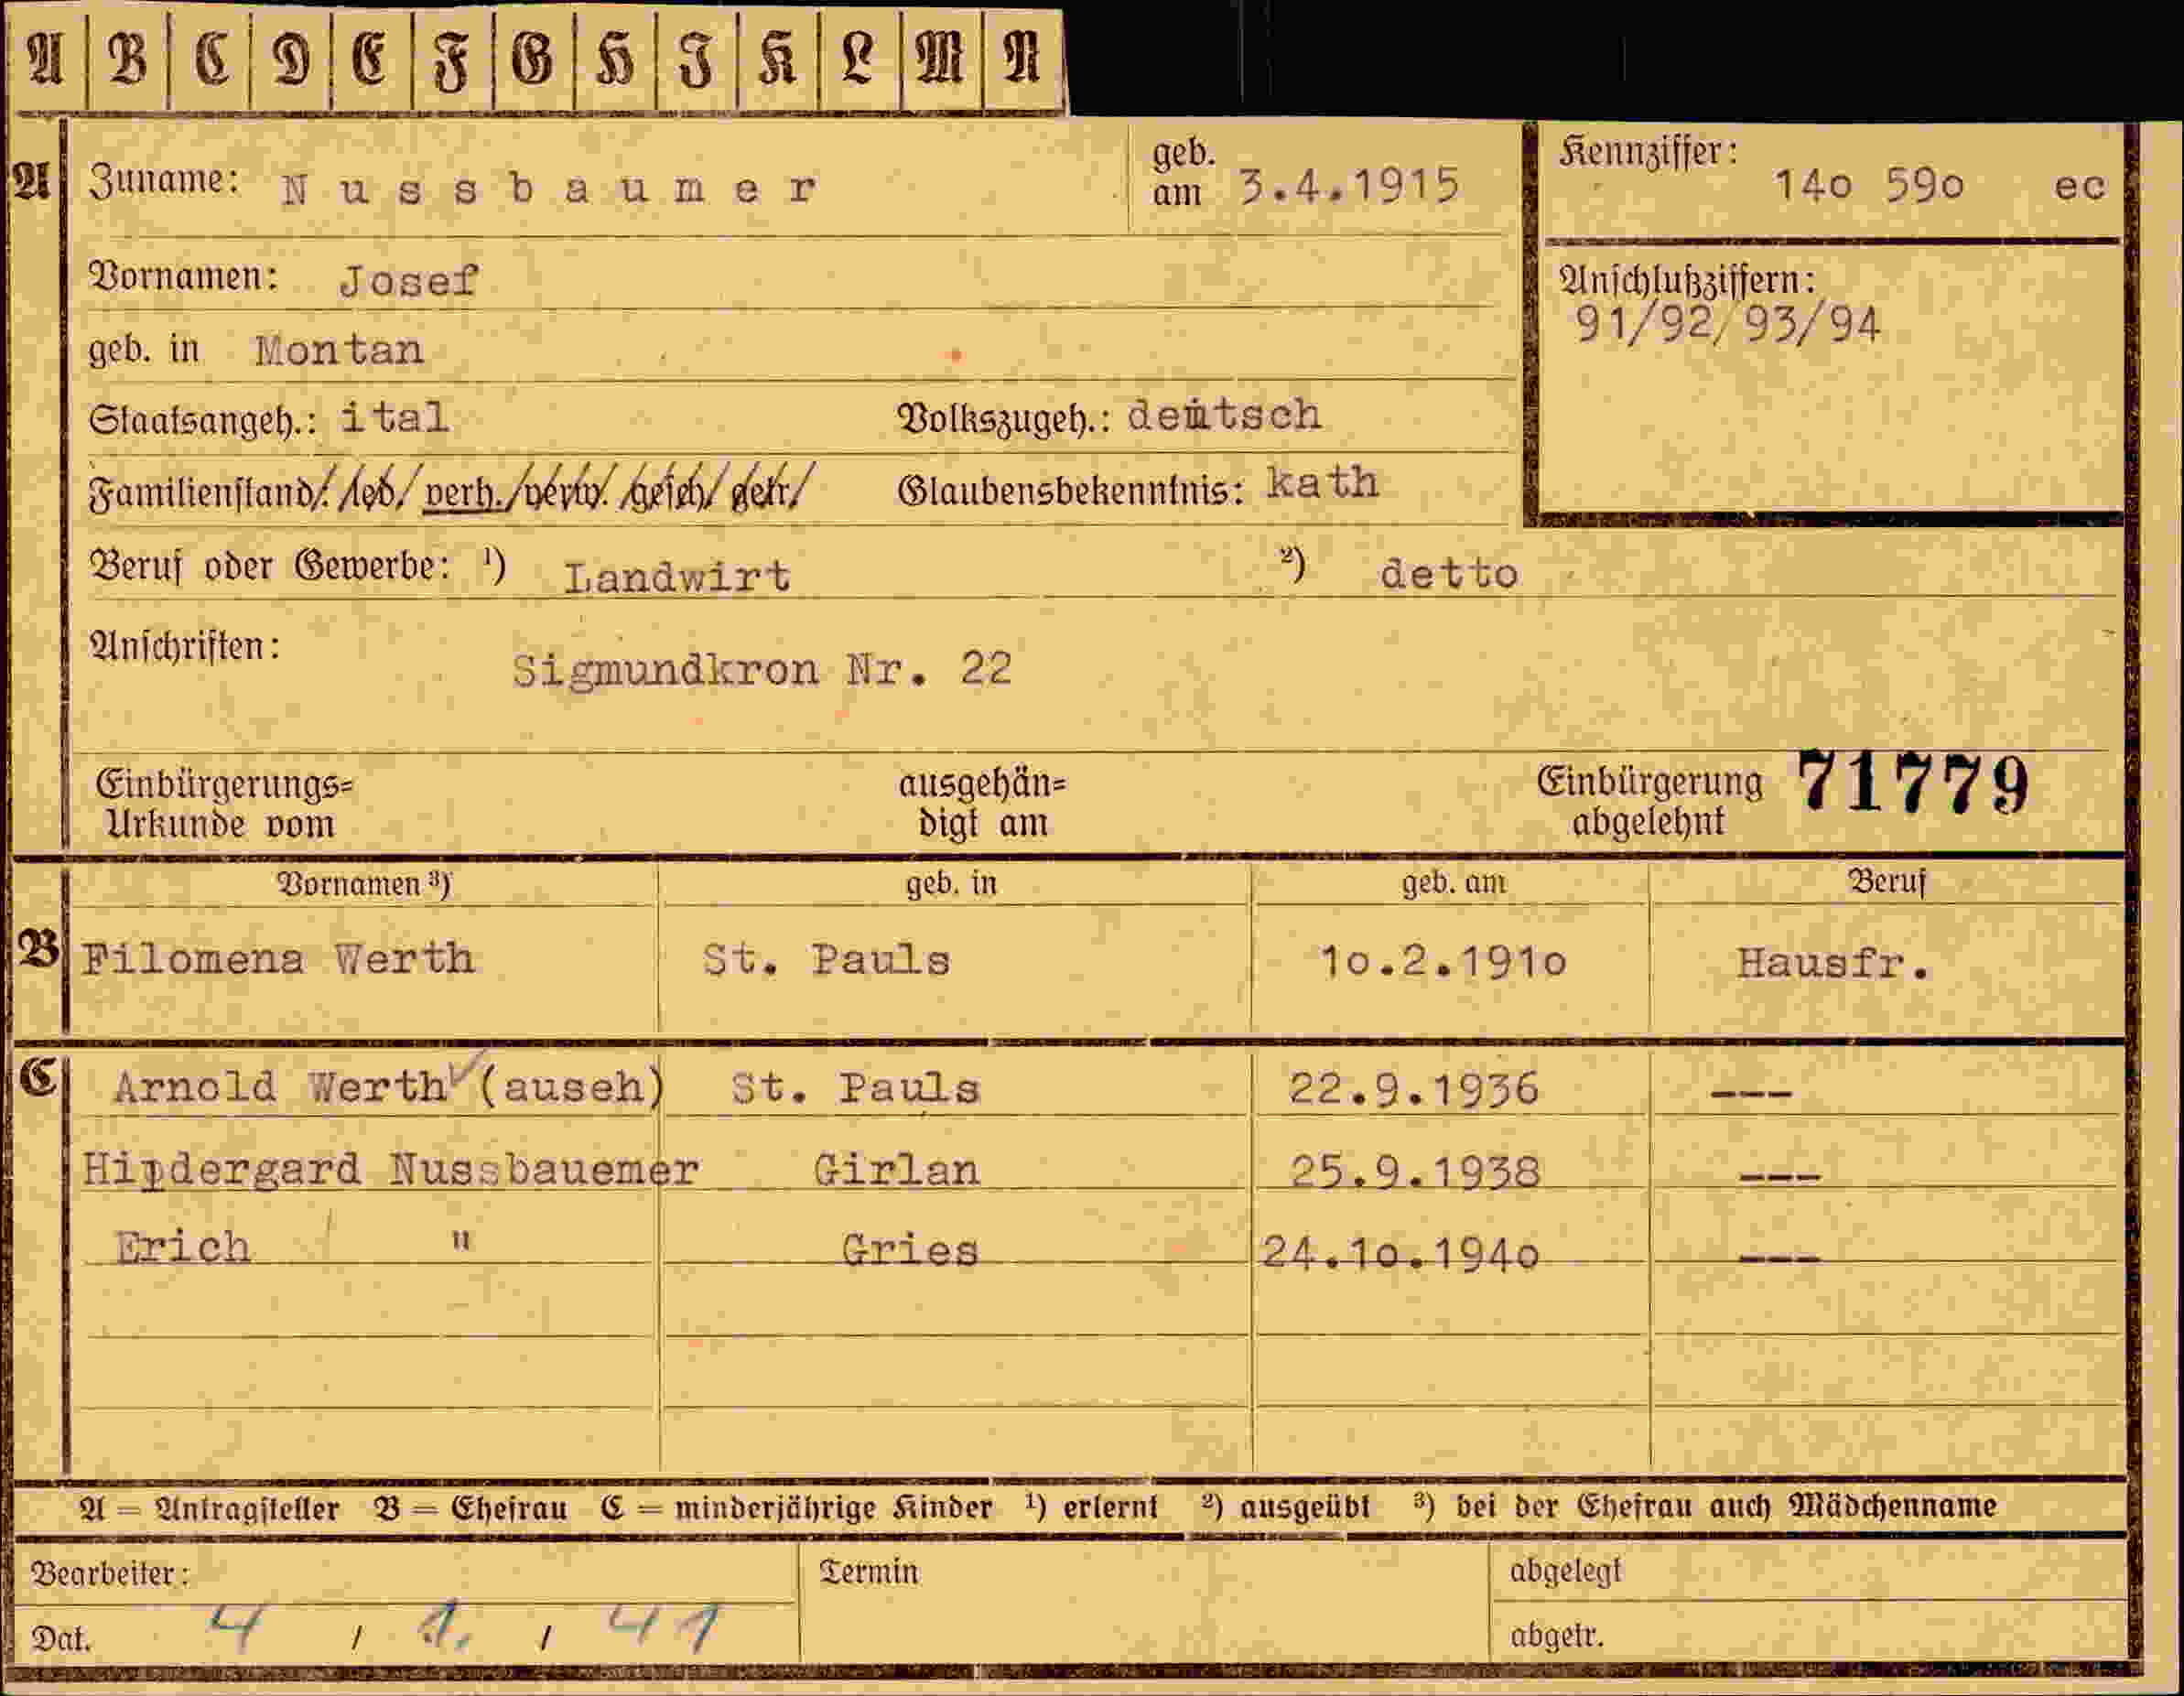 A B C D E F G H I K L M N
A Zuname: Nussbaumer geb. am 3.4.1915 Kennziffer: 14o 59o ec
Vornamen: Josef Anschlußziffern:
91/92/93/94
geb. in Montan
Staatsangeh.: ital Volkszugeh.: deutsch
Familienstand: led. verh. verw. gesch. getr. Glaubensbekenntnis: kath
Beruf oder Gewerbe: ¹) Landwirt ²) detto
Anschriften: Sigmundkron Nr. 22
Einbürgerungs= ausgehän= Einbürgerung 71779
Urkunde vom digt am abgelehnt
Vornamen ³) geb. in geb. am Beruf
B Filomena Werth St. Pauls 1o.2.191o Hausfr.
C Arnold Werth (auseh) St. Pauls 22.9.1936 ---
Hildergard Nussbauemer Girlan 25.9.1938 ---
Erich " Gries 24.1o.194o ---
A = Antragsteller B = Ehefrau C = minderjährige Kinder ¹) erlernt ²) ausgeübt ³) bei der Ehefrau auch Mädchenname
Bearbeiter: Termin abgelegt
Dat. 4 / 1. / 41 abgetr.